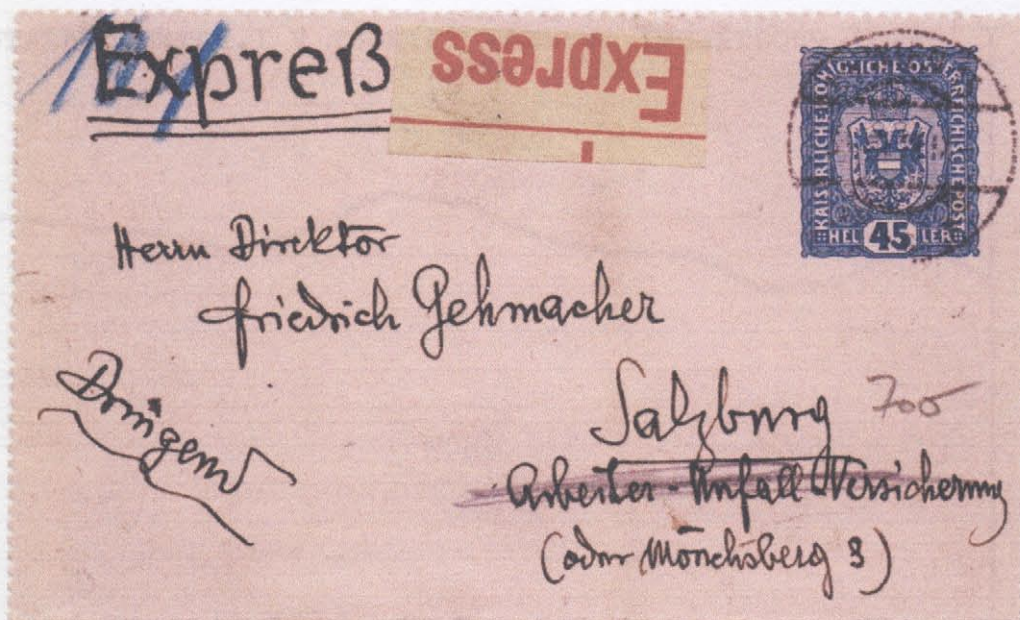 Expreß
Express
KAISERLICHE KÖNIGLICHE ÖSTERREICHISCHE POST
HELLER
45
Herrn Direktor
Friedrich Gehmacher
Dringend
Salzburg 700
Arbeiter-Unfall-Versicherung
(oder Mönchsberg 3)